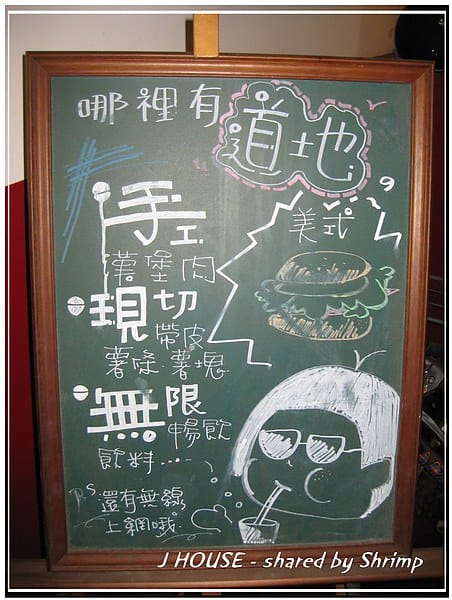 哪裡有道地
美式
手工
漢堡肉
現切
帶皮
薯條.薯塊.
無限
暢飲
飲料....
P.S.還有無線
上網哦.
J HOUSE - shared by Shrimp